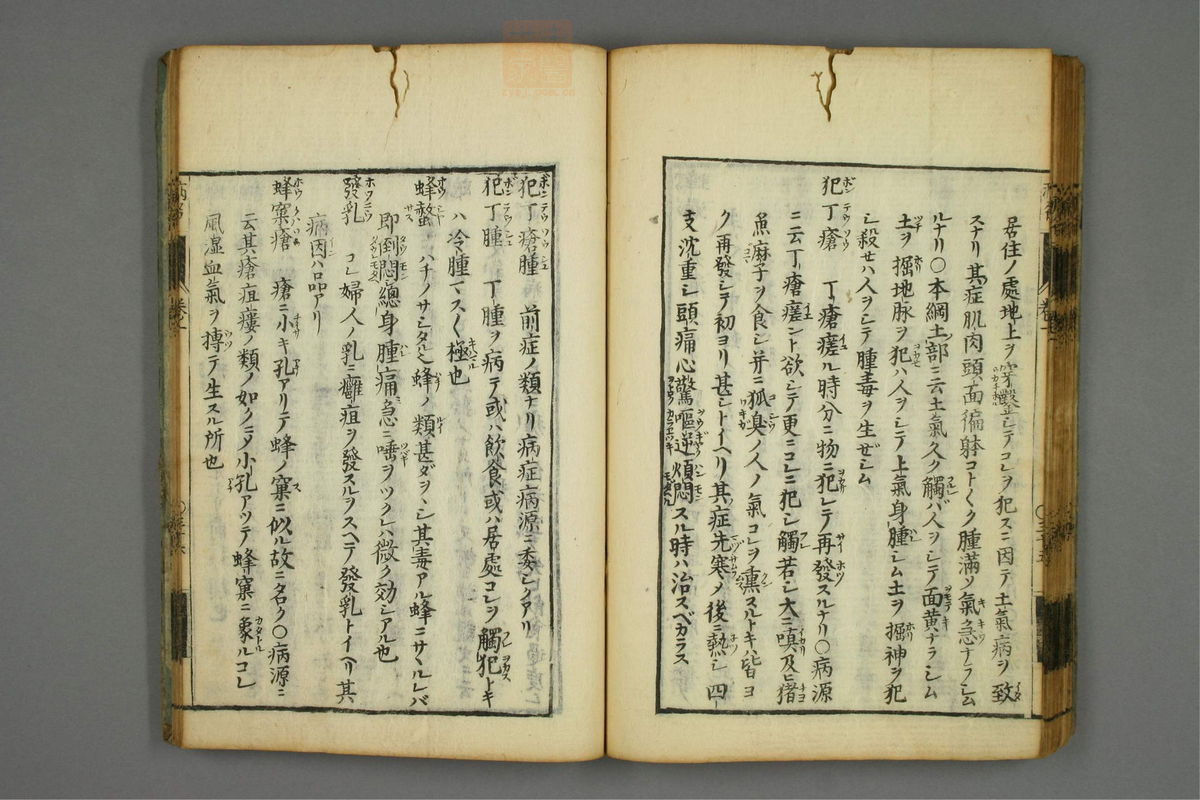 居住ノ處地上ヲ穿鑿シテコレヲ犯スニ因テ土氣病ヲ致
スナリ其症肌肉頭面徧身コトゴトク腫滿ソ氣急ナラシム
ルナリ〇本綱土部ニ云土氣久ク觸レバ人ヲシテ面黄ナラシム
土ヲ掘地脉ヲ犯ハ人ヲシテ上氣身腫シム土ヲ掘神ヲ犯
シ殺セハ人ヲシテ腫毒ヲ生ゼシム
犯丁瘡 丁瘡瘥ル時分ニ物ニ犯レテ再發スルナリ〇病源
ニ云丁瘡瘥ント欲シテ更ニコレニ犯シ觸若シ大ニ嗔及ヒ猪
魚麻子ヲ食シ并ニ狐臭ノ人ノ氣コレヲ熏スルトキハ皆ヨ
ク再發シテ初ヨリ甚シトイヘリ其症先寒メ後ニ熱シ四
支沈重シ頭痛心驚嘔逆煩悶スル時ハ治スベカラス
犯丁瘡腫 前症ノ類ナリ病症病源ニ委シクアリ
犯丁腫 丁腫ヲ病テ或ハ飲食或ハ居處コレヲ觸犯トキ
ハ冷腫マスく極也
蜂螫 ハチノサシタルヿ蜂ノ類甚ダヲヽシ其毒アル蜂ニサヽルレバ
即倒悶總身腫痛急ニ唾ヲツクレハ微ク効シアル也
發乳 コレ婦人ノ乳ニ癰疽ヲ發スルヲスヘテ發乳トイヘリ其
病因ハ品アリ
蜂窠瘡 瘡ニ小キ孔アリテ蜂ノ窠ニ似ル故ニ名ク〇病源ニ
云其瘡疽瘻ノ類ノ如クニメ小孔アツテ蜂窠ニ象ルコレ
風湿血氣ヲ搏テ生スル所也